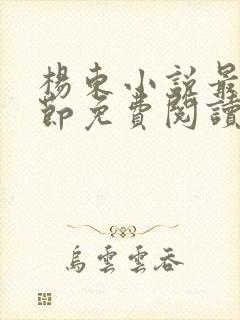 楊東小說最
節免費閱讀
烏雲雲吞